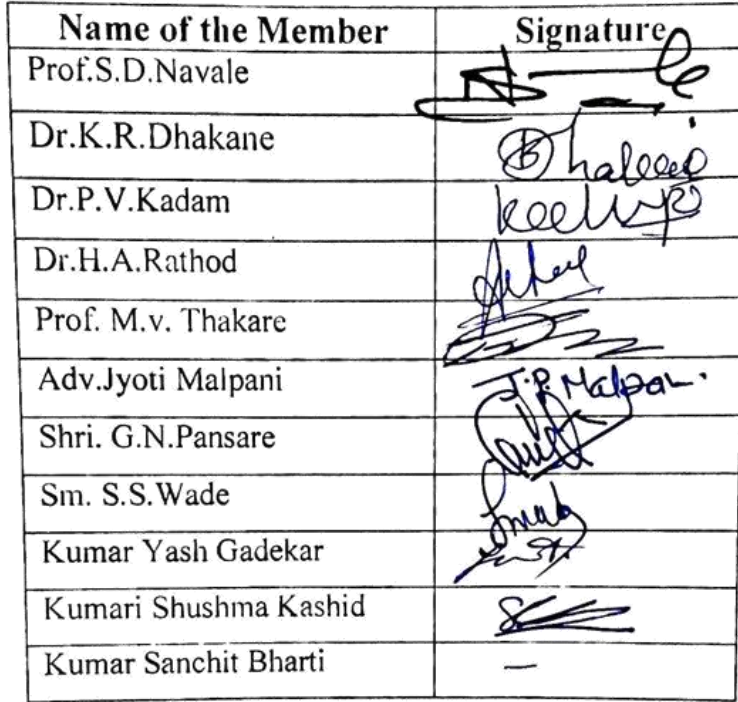 Name of the Member Signature
Prof.S.D.Navale
Dr.K.R.Dhakane
Dr.P.V.Kadam
Dr.H.A.Rathod
Prof. M.v. Thakare
Adv.Jyoti Malpani J.P. Malpani.
Shri. G.N.Pansare
Sm. S.S.Wade
Kumar Yash Gadekar
Kumari Shushma Kashid
Kumar Sanchit Bharti –